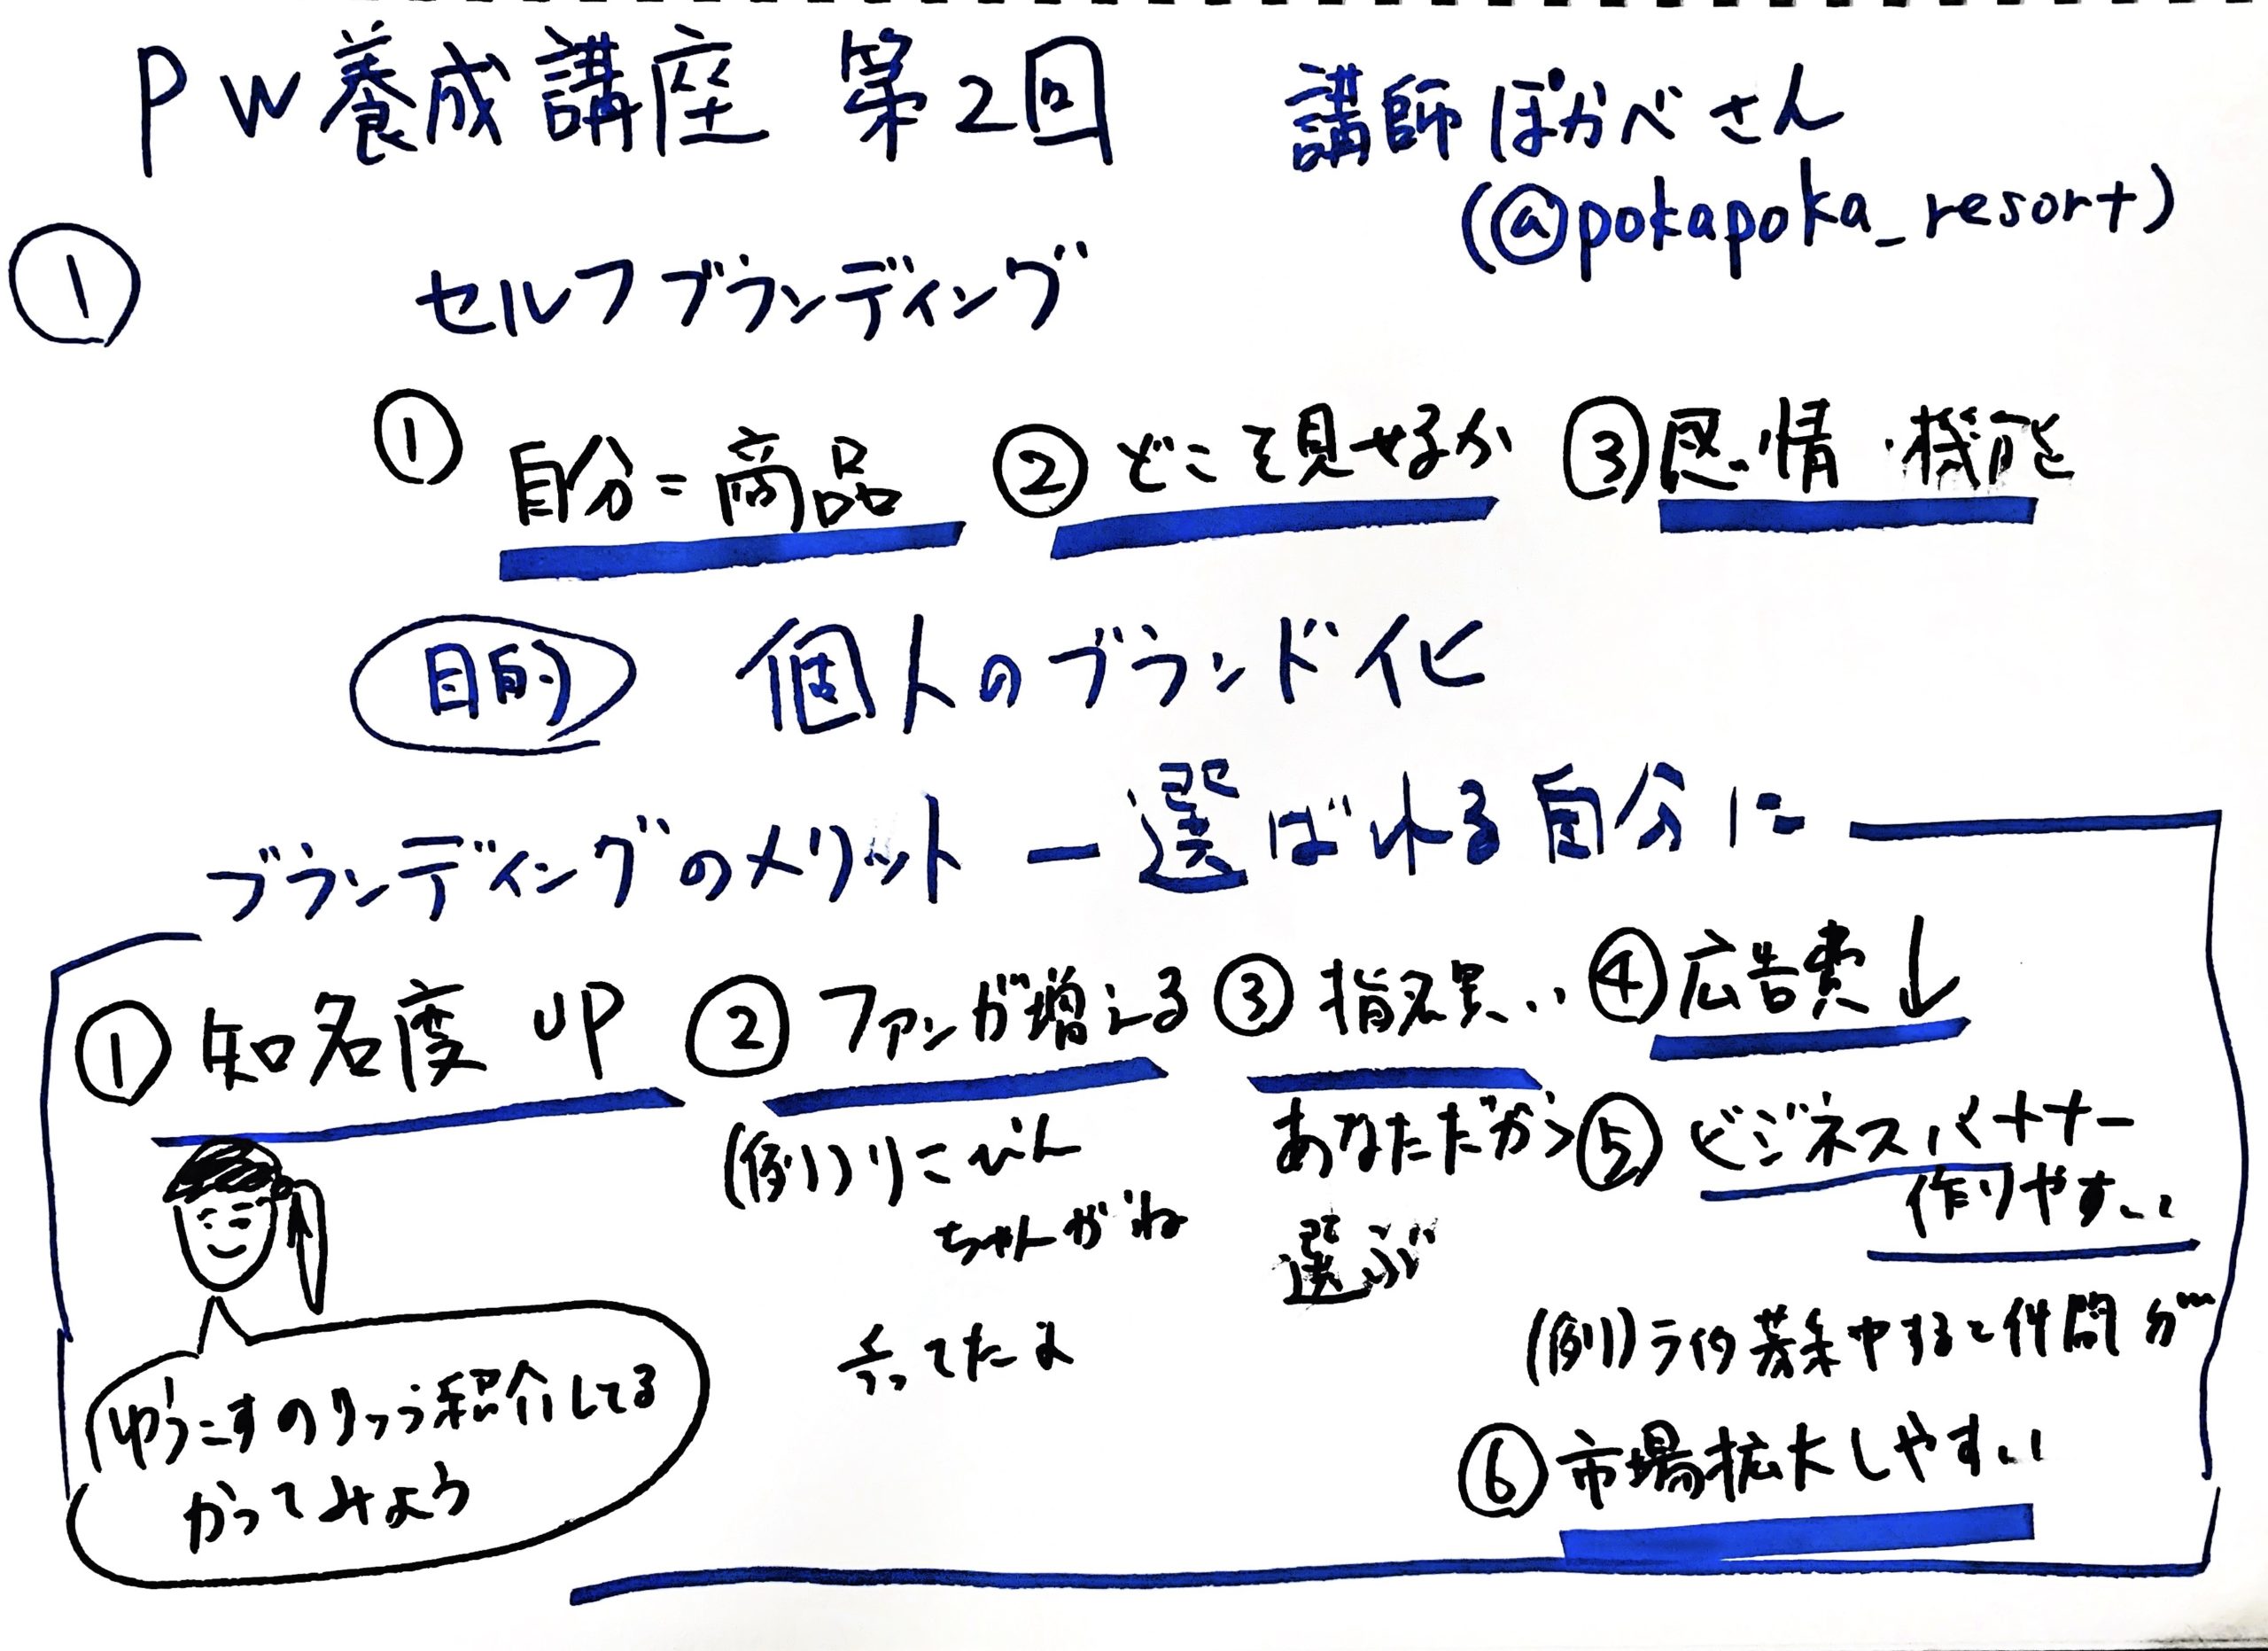 PW養成講座 第2回
講師 ぽかべさん
(@pokapoka_resort)
① セルフブランディング
① 自分=商品 ② どこを見せるか ③ 感情・機能
目的 個人のブランド化
ブランディングのメリット ー 選ばれる自分に
① 知名度UP ② ファンが増える ③ 指名買.. ④ 広告費↓
(例)りこぴん
ちゃんがね
言ってたよ
あなただから
選ぶ
⑤ ビジネスパートナー
作りやすい
(例)ライ募集中すると仲間が…
⑥ 市場拡大しやすい
ゆうこすのりっう紹介してる
かってみよう